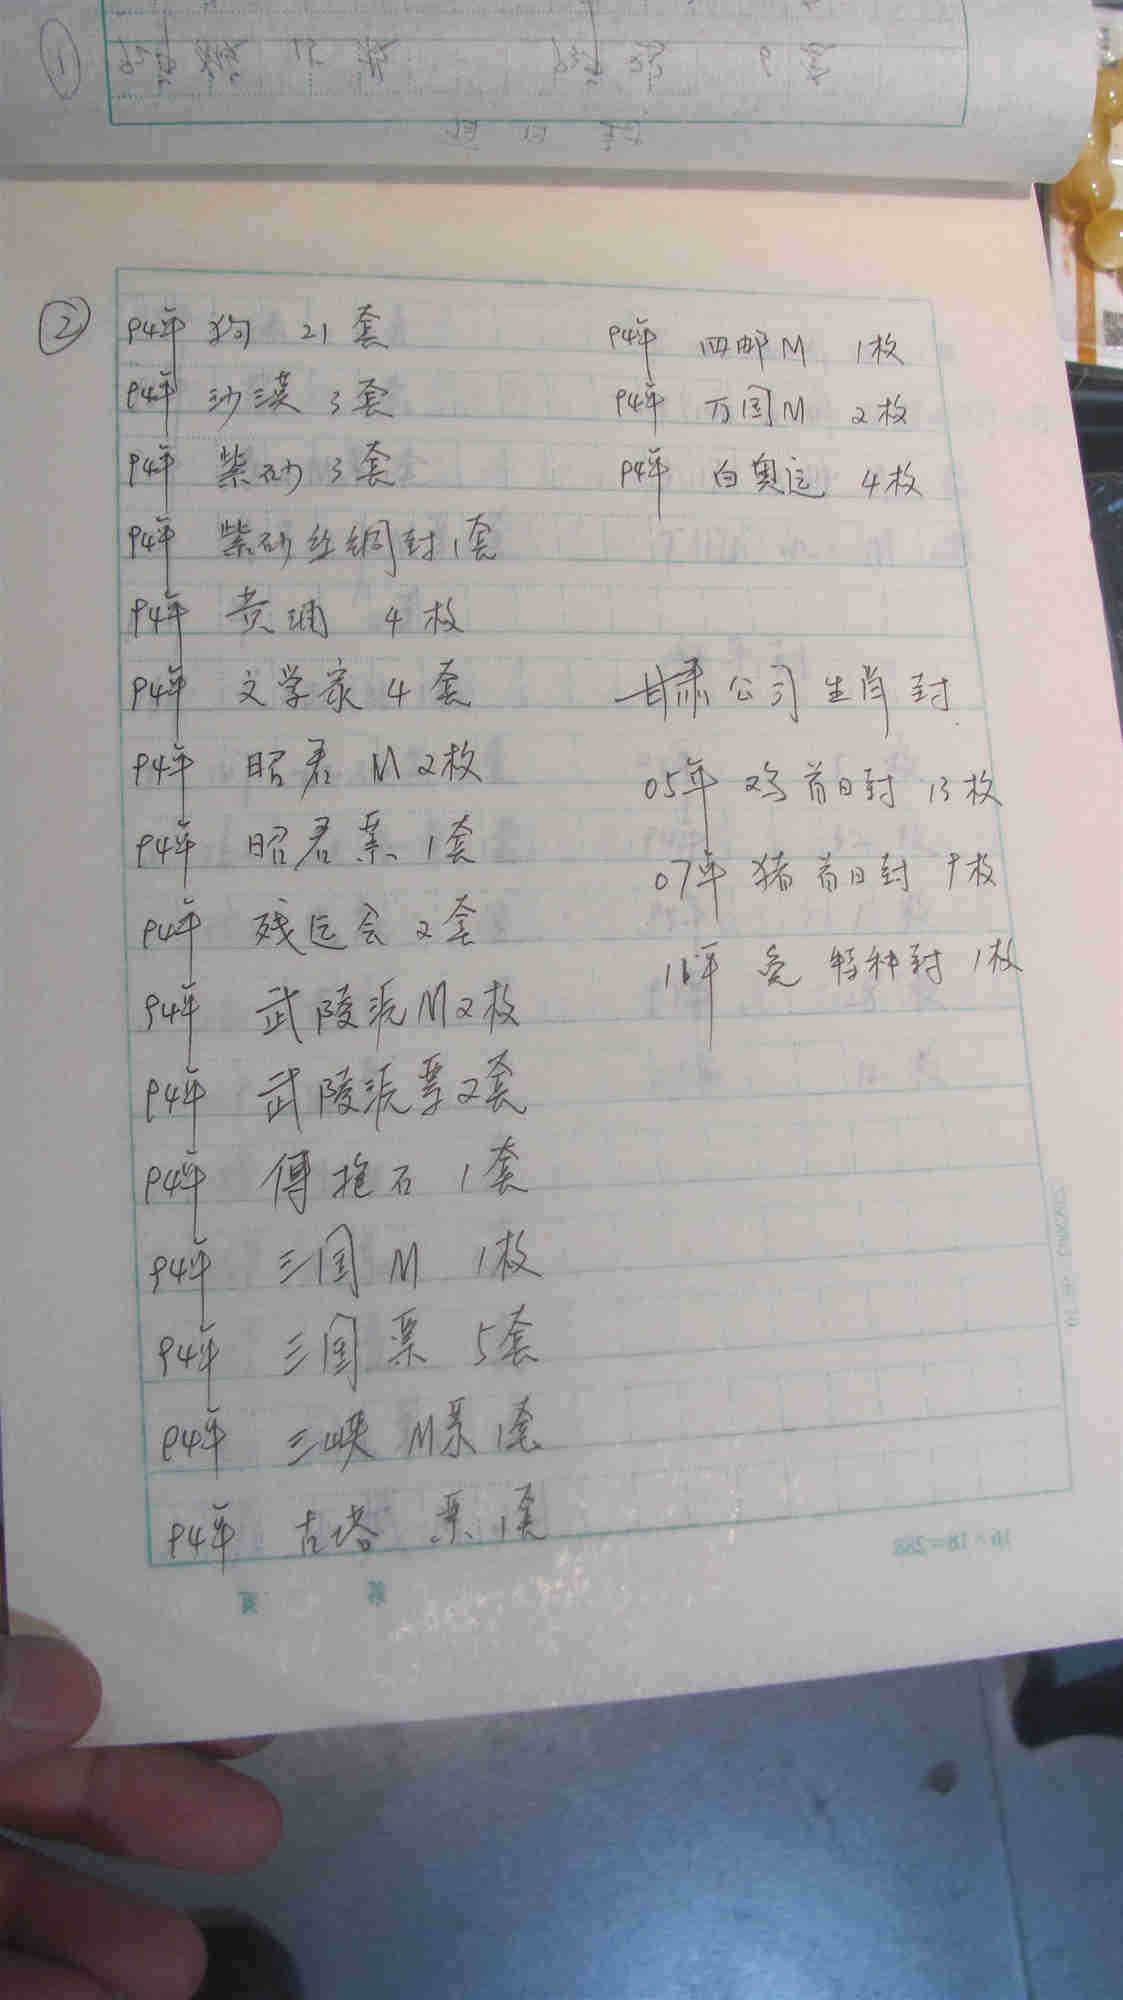 ②
94年 狗 21套
94年 沙漠 3套
94年 紫砂 3套
94年 紫砂丝绸封 1套
94年 黄埔 4枚
94年 文学家 4套
94年 昭君 M 2枚
94年 昭君票 1套
94年 残运会 2套
94年 武陵源M 2枚
94年 武陵源票 2套
94年 傅抱石 1套
94年 三国 M 1枚
94年 三国票 5套
94年 三峡 M票 1套
94年 古塔 票 1套
94年 四邮M 1枚
94年 万国M 2枚
94年 白奥运 4枚
甘肃公司生肖封
05年 鸡首日封 13枚
07年 猪首日封 9枚
11年 兔 特种封 1枚
16×18=288